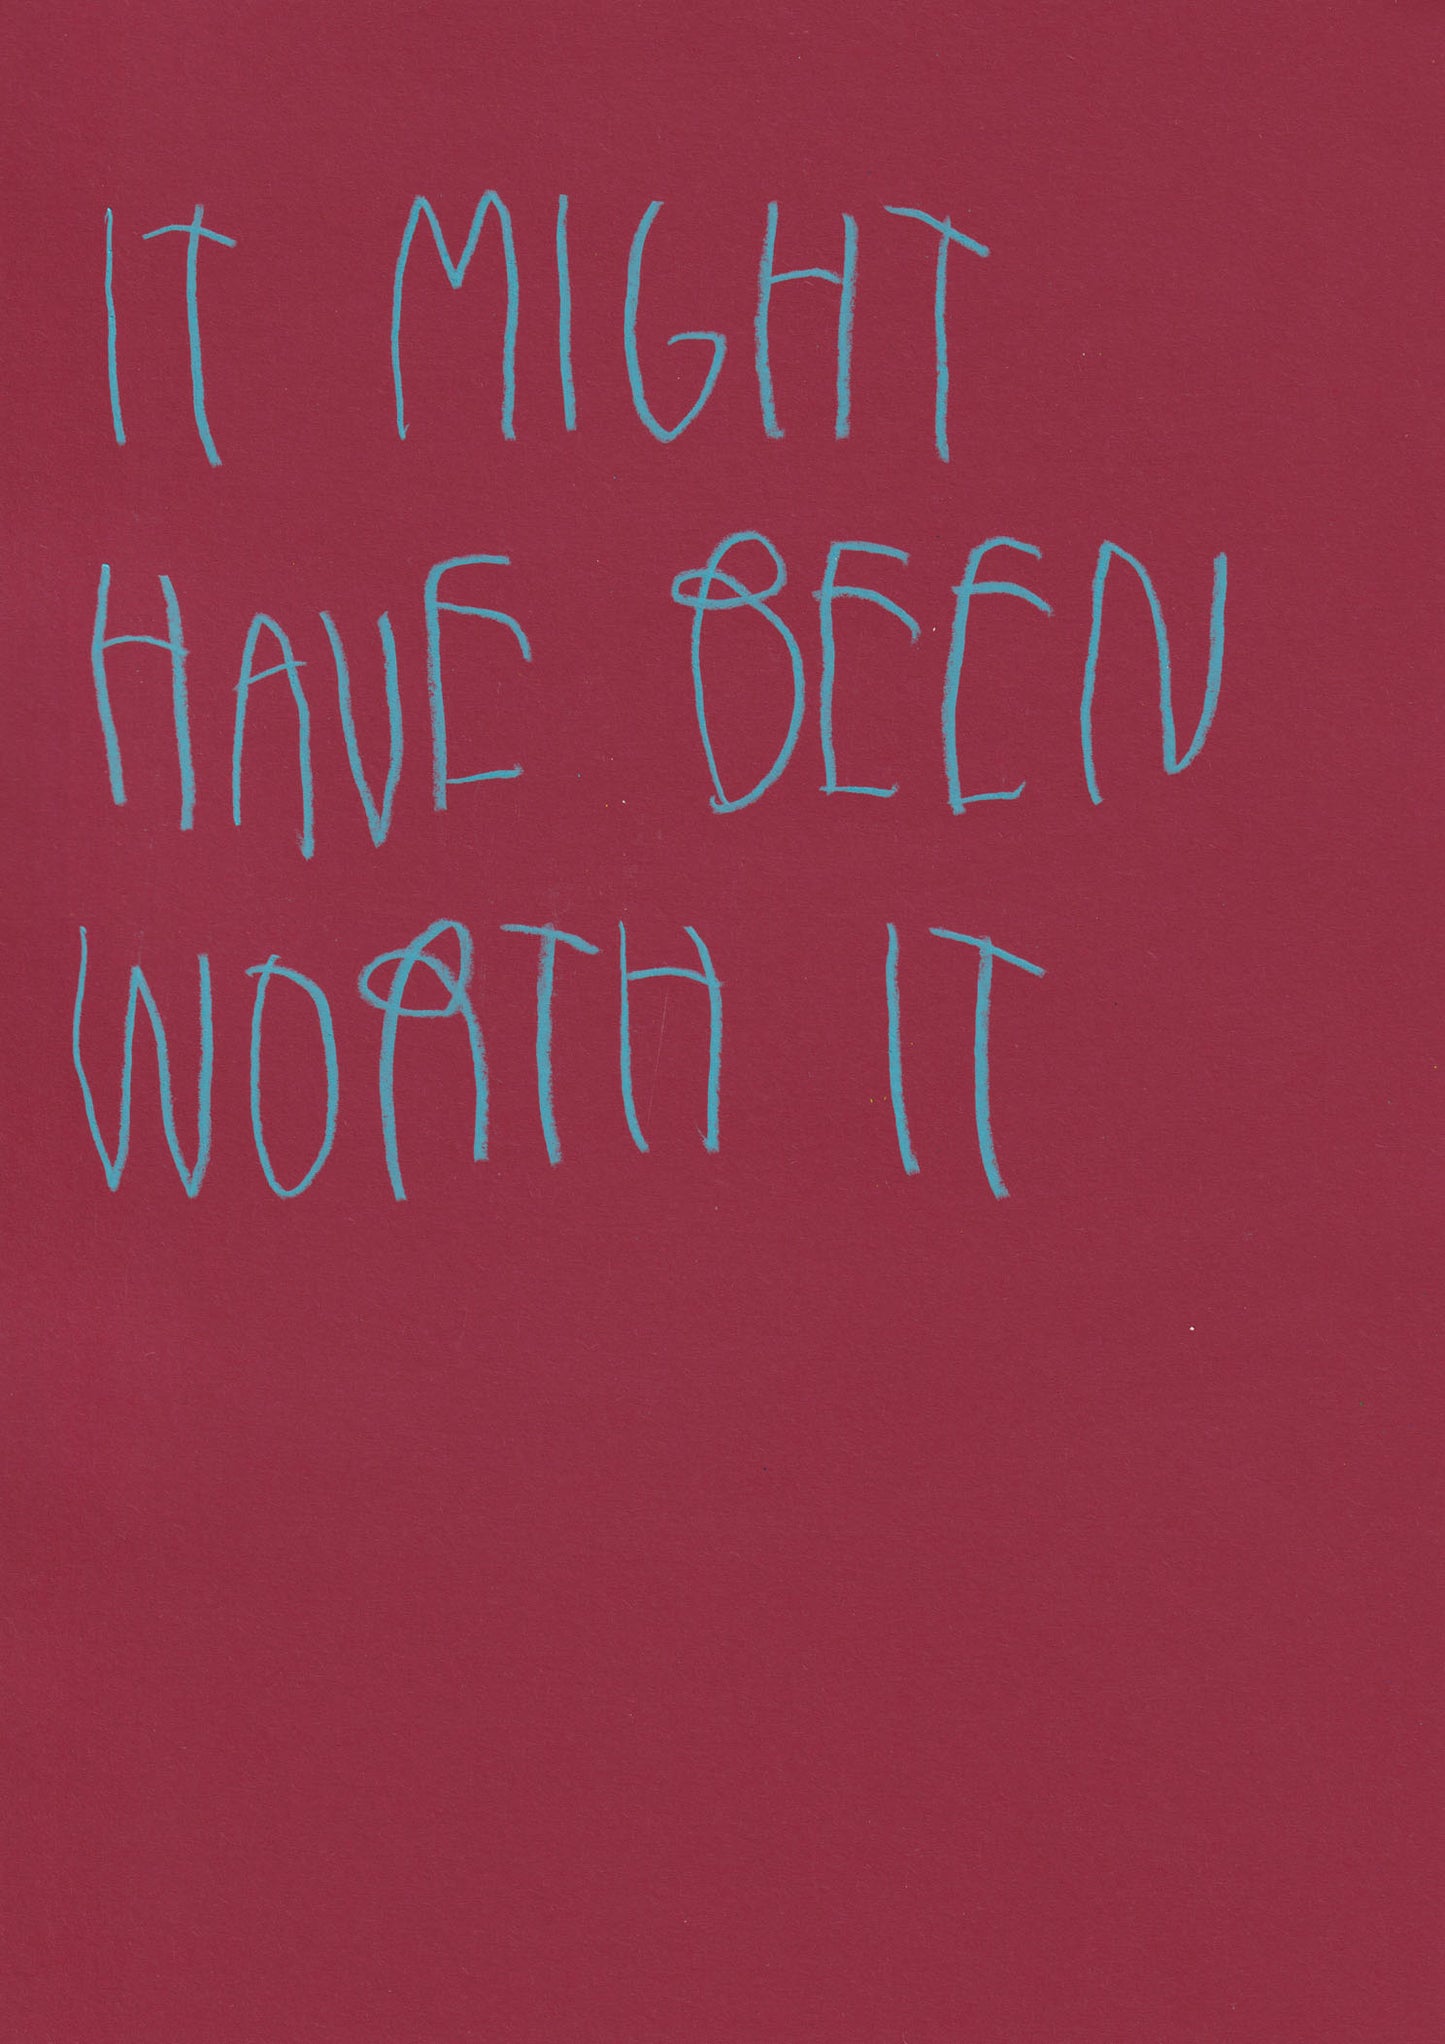 IT MIGHT
HAVE BEEN
WORTH IT